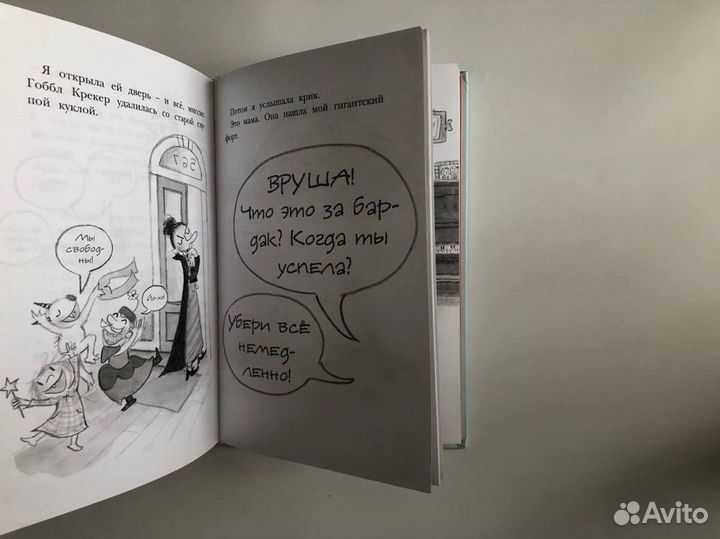 Я открыла ей дверь – и всё, миссис
Гоббл Крекер удалилась со старой глу-
пой куклой.
567
Мы
свобод-
ны!
Ого-хо!
Потом я услышала крик.
Это мама. Она нашла мой гигантский
форт.
ВРУША!
Что это за бар-
дак? Когда ты
успела?
Убери всё
немед-
ленно!
Avito